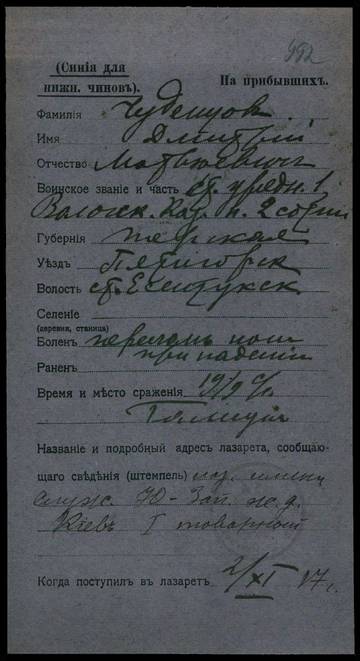 992
(Синія для
нижн. чиновъ).
На прибывшихъ.
Фамилія Чуденцов
Имя Дмитрій
Отчество Матвѣевичъ
Воинское званіе и часть ст. урядн. 1
Волгск. каз. п. 2 сотни
Губернія Терская
Уѣздъ Пятигорск
Волость ст. Есентукск
Селеніе
(деревня, станица)
Боленъ перелом ноги
при падении
Раненъ
Время и мѣсто сраженія 19/9 с/г.
Галиція
Названіе и подробный адресъ лазарета, сообщаю-
щаго свѣдѣнія (штемпель) лаз. имени
служ. Ю-Зап. ж. д.
Кіевъ I товарной
Когда поступилъ въ лазаретъ 2/XI 17 г.